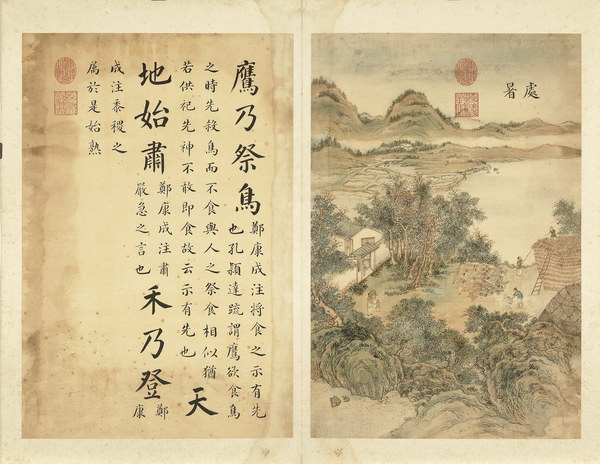 處暑
鷹乃祭鳥
鄭康成注將食之示有先
也孔穎達疏謂鷹欲食鳥
之時先殺鳥而不食與人之祭食相似猶
若供祀先神不敢即食故云示有先也
天
地始肅
鄭康成注肅
嚴急之言也
禾乃登
鄭
康
成注黍稷之
屬於是始熟